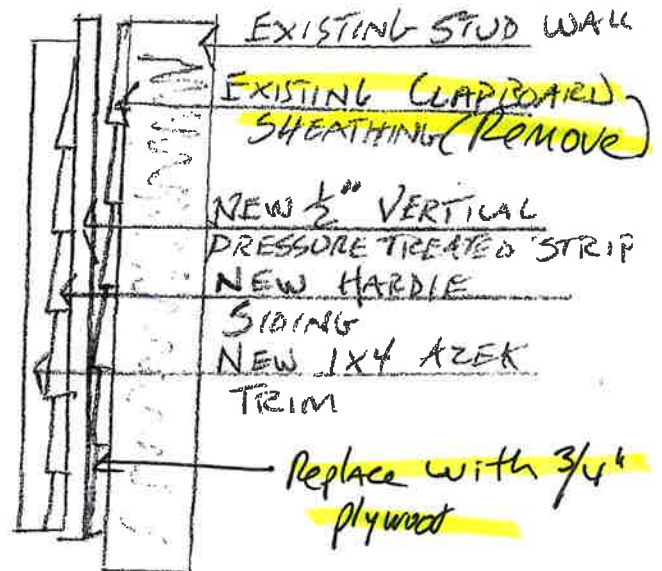 EXISTING STUD WALL
EXISTING CLAPBOARD
SHEATHING (REMOVE)
NEW ½" VERTICAL
PRESSURE TREATED STRIP
NEW HARDIE
SIDING
NEW 1X4 AZEK
TRIM
Replace with 3/4"
plywood